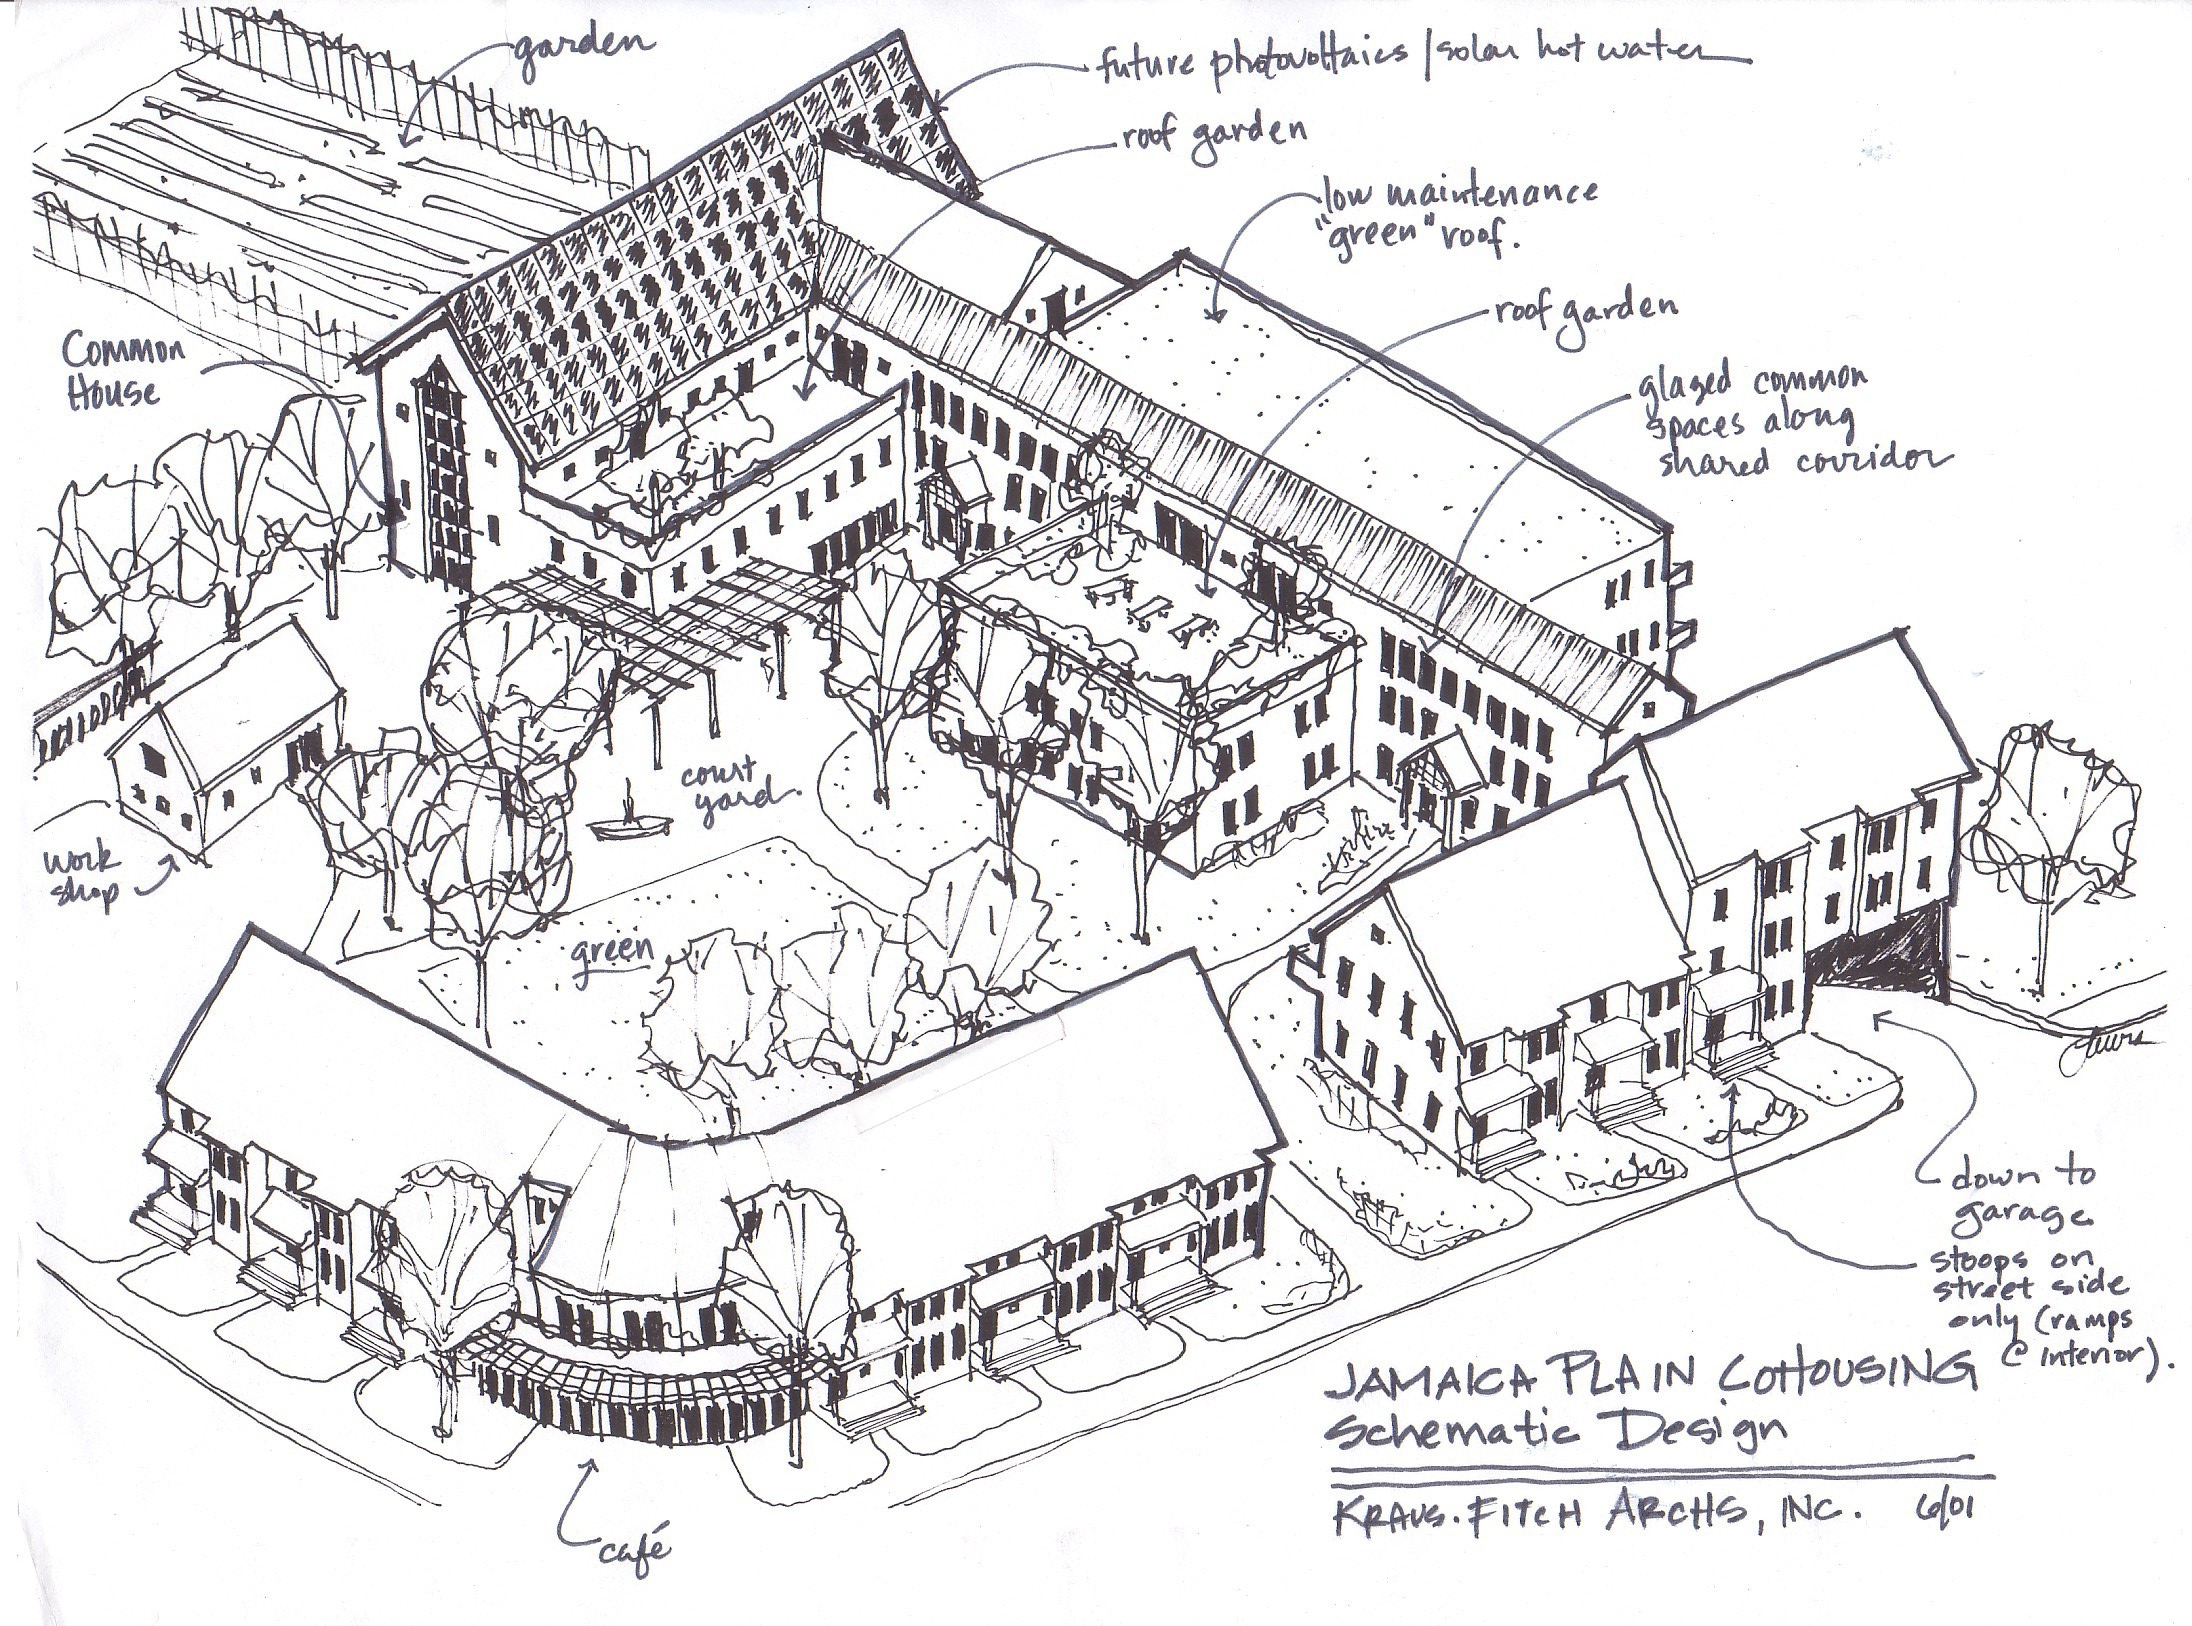 garden
future photovoltaics / solar hot water
roof garden
low maintenance
"green" roof.
roof garden
glazed common
spaces along
shared corridor
Common
House
court
yard.
work
shop
green
down to
garage
stoops on
street side
only (ramps
@ interior).
café
JAMAICA PLAIN COHOUSING
Schematic Design
KRAUS. FITCH ARCHS, INC. 6/01